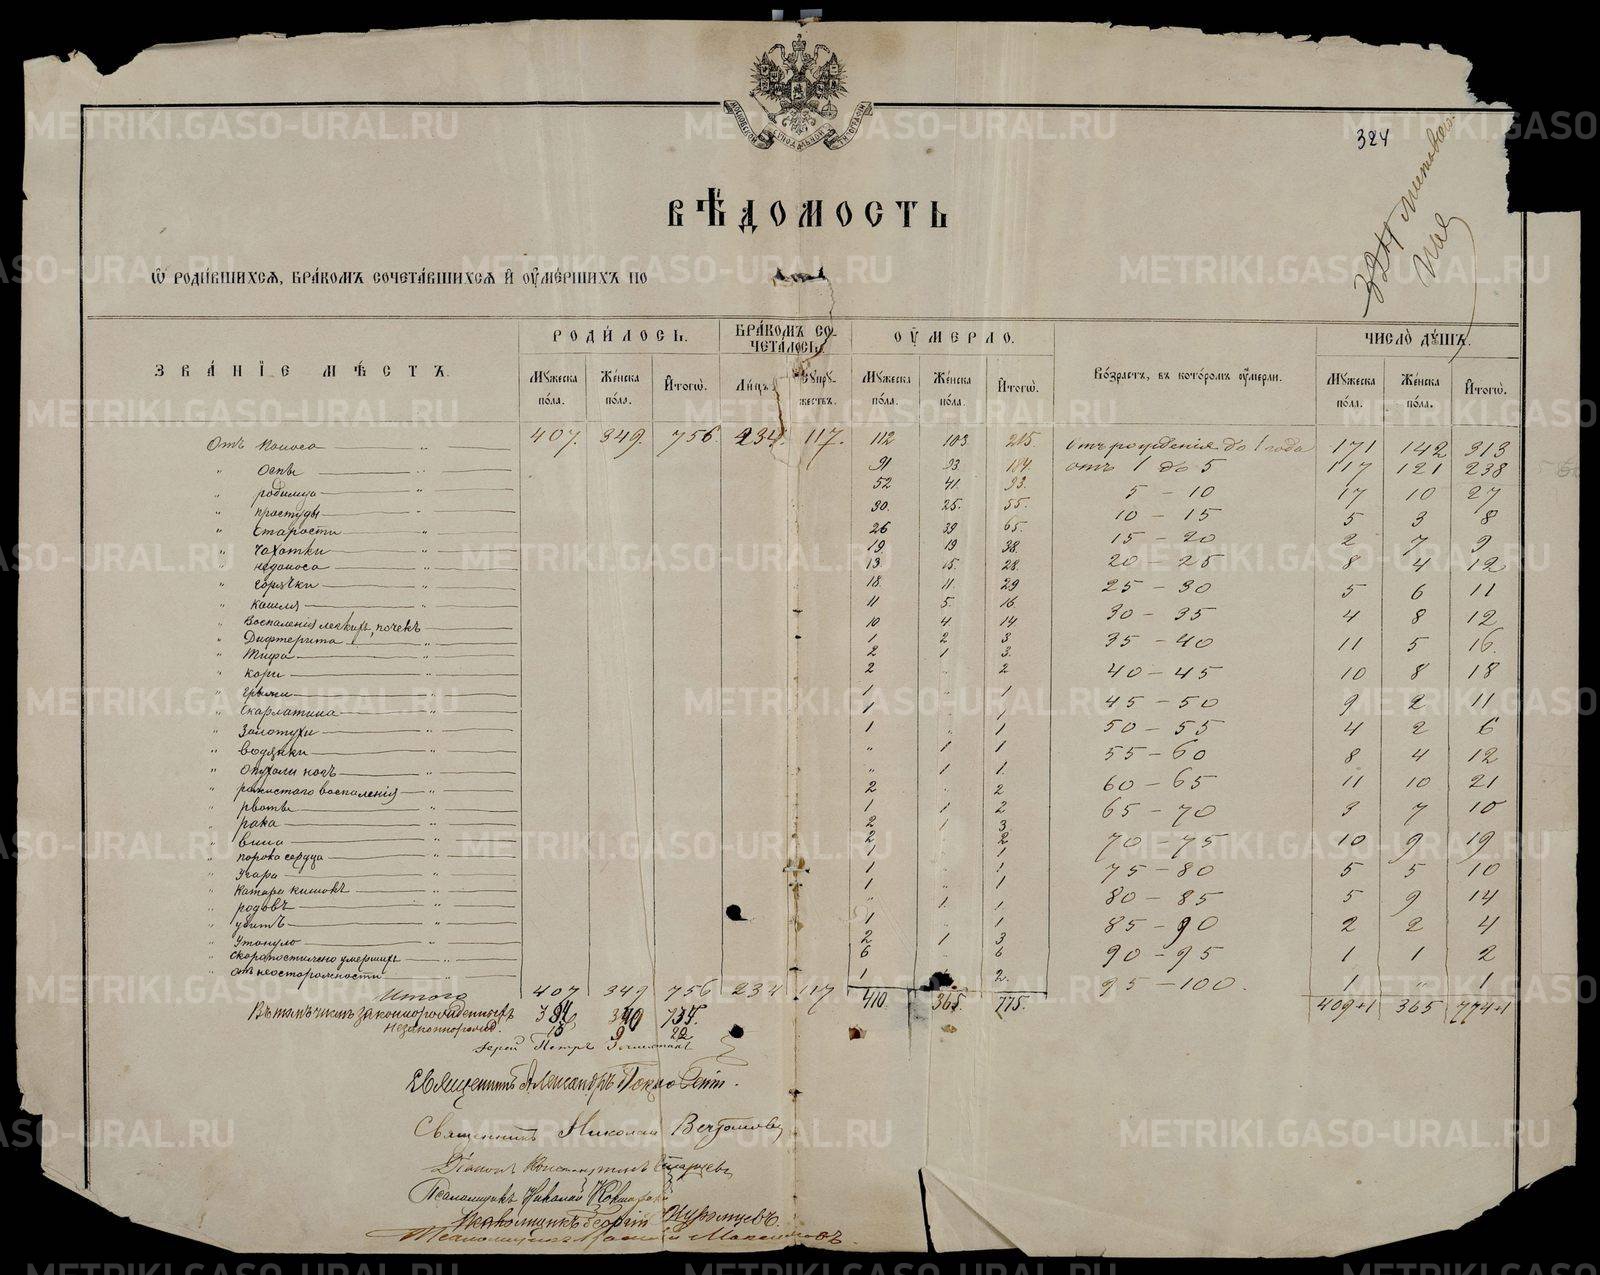 МОСКОВСКОЙ СѴНОДАЛЬНОЙ ТИПОГРАФІИ
324
ВѢДОМОСТЬ
Ѿ РОДИВШИХСѦ, БРАКОМЪ СОЧЕТАВШИХСѦ И ОУМЕРШИХЪ ПО
ЗВАНІЕ МѢСТЪ.
РОДИЛОСЬ.
БРАКОМЪ СОЧЕТАЛОСЬ.
ОУМЕРЛО.
Возрастъ, въ которомъ оумерли.
ЧИСЛО ДУШЪ.
Мужеска пола. Женска пола. Итогѡ. Лицъ. Супружествъ. Мужеска пола. Женска пола. Итогѡ. Мужеска пола. Женска пола. Итогѡ.
Отъ поноса " 407. 349. 756. 234. 117. 112 103 215 отъ рожденія до 1 года 171 142 313
" Оспы " 91 93 184. отъ 1 до 5 117 121 238
" родимца " 52 41. 93. 5 - 10 17 10 27
" простуды " 30. 25. 55. 10 - 15 5 3 8
" Старости " 26 39 65. 15 - 20 2 7 9
" Чахотки " 19 19 38. 20 - 25 8 4 12
" недоноса " 13 15. 28. 25 - 30 5 6 11
" горячки " 18. 11. 29 30 - 35 4 8 12
" Кашля " 11 5. 16. 35 - 40 11 5 16.
" Воспаленія легкихъ, почекъ 10 4 14 40 - 45 10 8 18
" Дифтерита " 1 2 3 45 - 50 9 2 11
" Тифа " 2 1 3. 50 - 55 4 2 6
" Кори " 2 " 2 55 - 60 8 4 12
" грыжи " 1 " 1 60 - 65 11 10 21
" Скарлатина " 1 " 1 65 - 70 3 7 10
" Золотухи " 1 " 1 70 - 75 10 9 19
" водянки " " 1 1 75 - 80 5 5 10
" Опухоли ногъ " " 1 1. 80 - 85 5 9 14
" рожистаго воспаленія " 2 " 2 85 - 90 2 2 4
" рвоты " 1 1 2 90 - 95 1 1 2
" рака " 2 1 3 95 - 100. 1 " 1
" вина " 2 " 2
" порока сердца 1 " 1
" Угара " 1 " 1
" Катара кишокъ " 1 " 1
" родовъ " " 1 1
" убитъ " 1 " 1
" Утонуло " 2 1 3
" скоропостижно умершихъ " 6 " 6
" отъ неосторожности " 1 2
Итого 407 349 756 234 117 410. 365. 775. 409+1 365 774+1
Въ томъ числѣ законнорожденныхъ
незаконнорожд. 9 22
Іерей Петръ
Священникъ Александръ
Священникъ Николай
Діаконъ Константинъ
Псаломщикъ Николай
Псаломщикъ Георгій
Псаломщикъ
METRIKI.GASO-URAL.RU